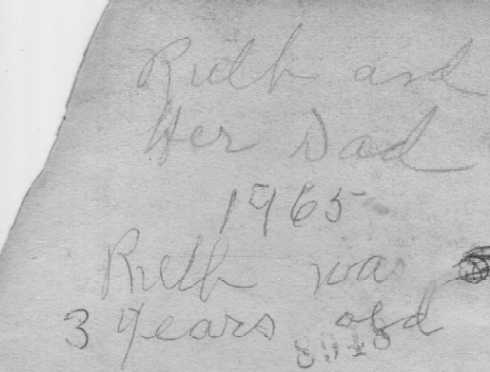 Ruth and
Her Dad
1965
Ruth was
3 years old